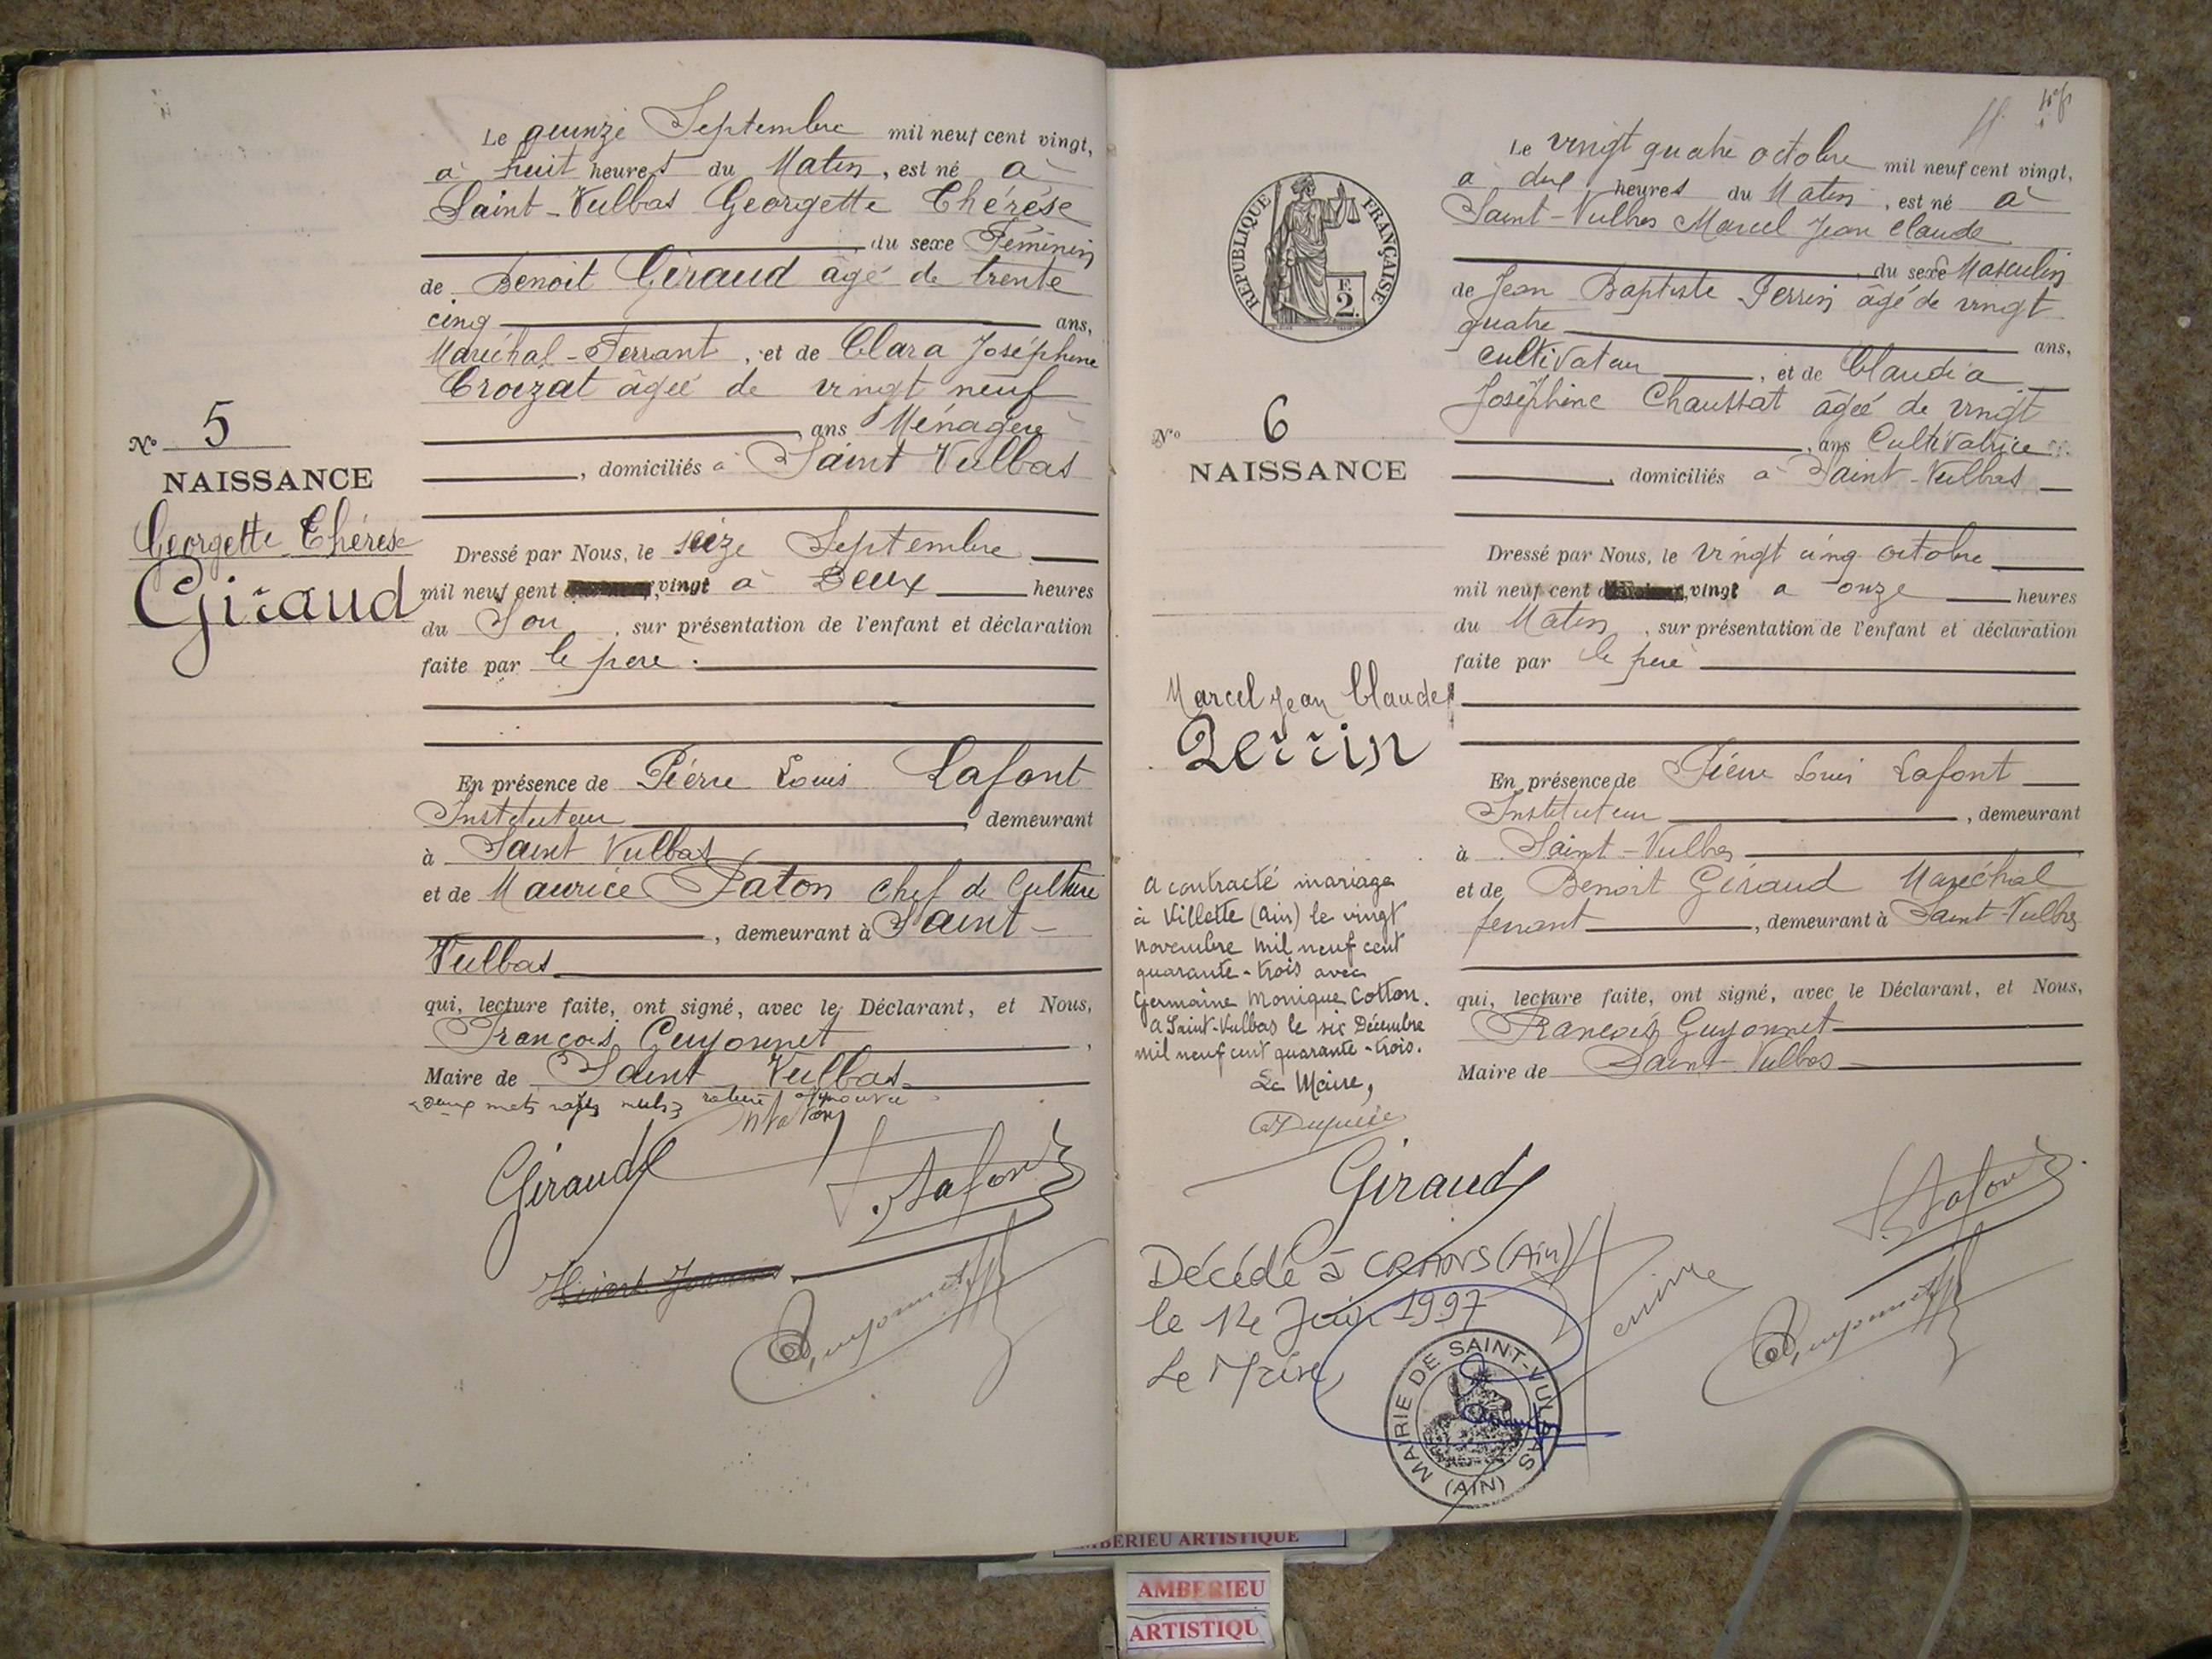 Le quinze Septembre mil neuf cent vingt,
à huit heures du Matin, est né à
Saint-Vulbas Georgette Thérèse
du sexe Féminin
de Benoit Giraud âgé de trente
cinq ans,
Maréchal-Ferrant, et de Clara Joséphine
Croizat âgée de vingt neuf
ans Ménagère
, domiciliés à Saint Vulbas
No 5
NAISSANCE
Georgette Thérèse
Giraud
Dressé par Nous, le seize Septembre
mil neuf cent vingt à Deux heures
du Soir, sur présentation de l'enfant et déclaration
faite par le père.
En présence de Pierre Louis Lafont
Instituteur, demeurant
à Saint Vulbas
et de Maurice Paton Chef de Culture
, demeurant à Saint-
Vulbas
qui, lecture faite, ont signé, avec le Déclarant, et Nous,
François Guyonnet,
Maire de Saint Vulbas
Deux mots rayés nuls
Giraud
Lafont
Guyonnet
4
Le vingt quatre octobre mil neuf cent vingt,
à dix heures du Matin, est né à
Saint-Vulbas Marcel Jean Claude
, du sexe Masculin
de Jean Baptiste Perrin âgé de vingt
quatre ans,
cultivateur, et de Claudia
Joséphine Chaussat âgée de vingt
, ans Cultivatrice
, domiciliés à Saint-Vulbas
RÉPUBLIQUE FRANÇAISE
F.
2.
No 6
NAISSANCE
Marcel Jean Claude
Perrin
Dressé par Nous, le vingt cinq octobre
mil neuf cent vingt à onze heures
du Matin, sur présentation de l'enfant et déclaration
faite par le père
En présence de Pierre Louis Lafont
Instituteur, demeurant
à Saint-Vulbas
et de Benoit Giraud Maréchal
ferrant, demeurant à Saint-Vulbas
qui, lecture faite, ont signé, avec le Déclarant, et Nous,
François Guyonnet
Maire de Saint-Vulbas
A contracté mariage
à Villette (Ain) le vingt
novembre mil neuf cent
quarante-trois avec
Germaine Monique Cotton.
A Saint-Vulbas le six Décembre
mil neuf cent quarante-trois.
Le Maire,
Giraud
Lafont
Perrin
Guyonnet
Décédé à CRANS (Ain)
le 12 Juin 1997
Le Maire
MAIRIE DE SAINT-VULBAS
(AIN)
AMBERIEU ARTISTIQUE
AMBERIEU
ARTISTIQU